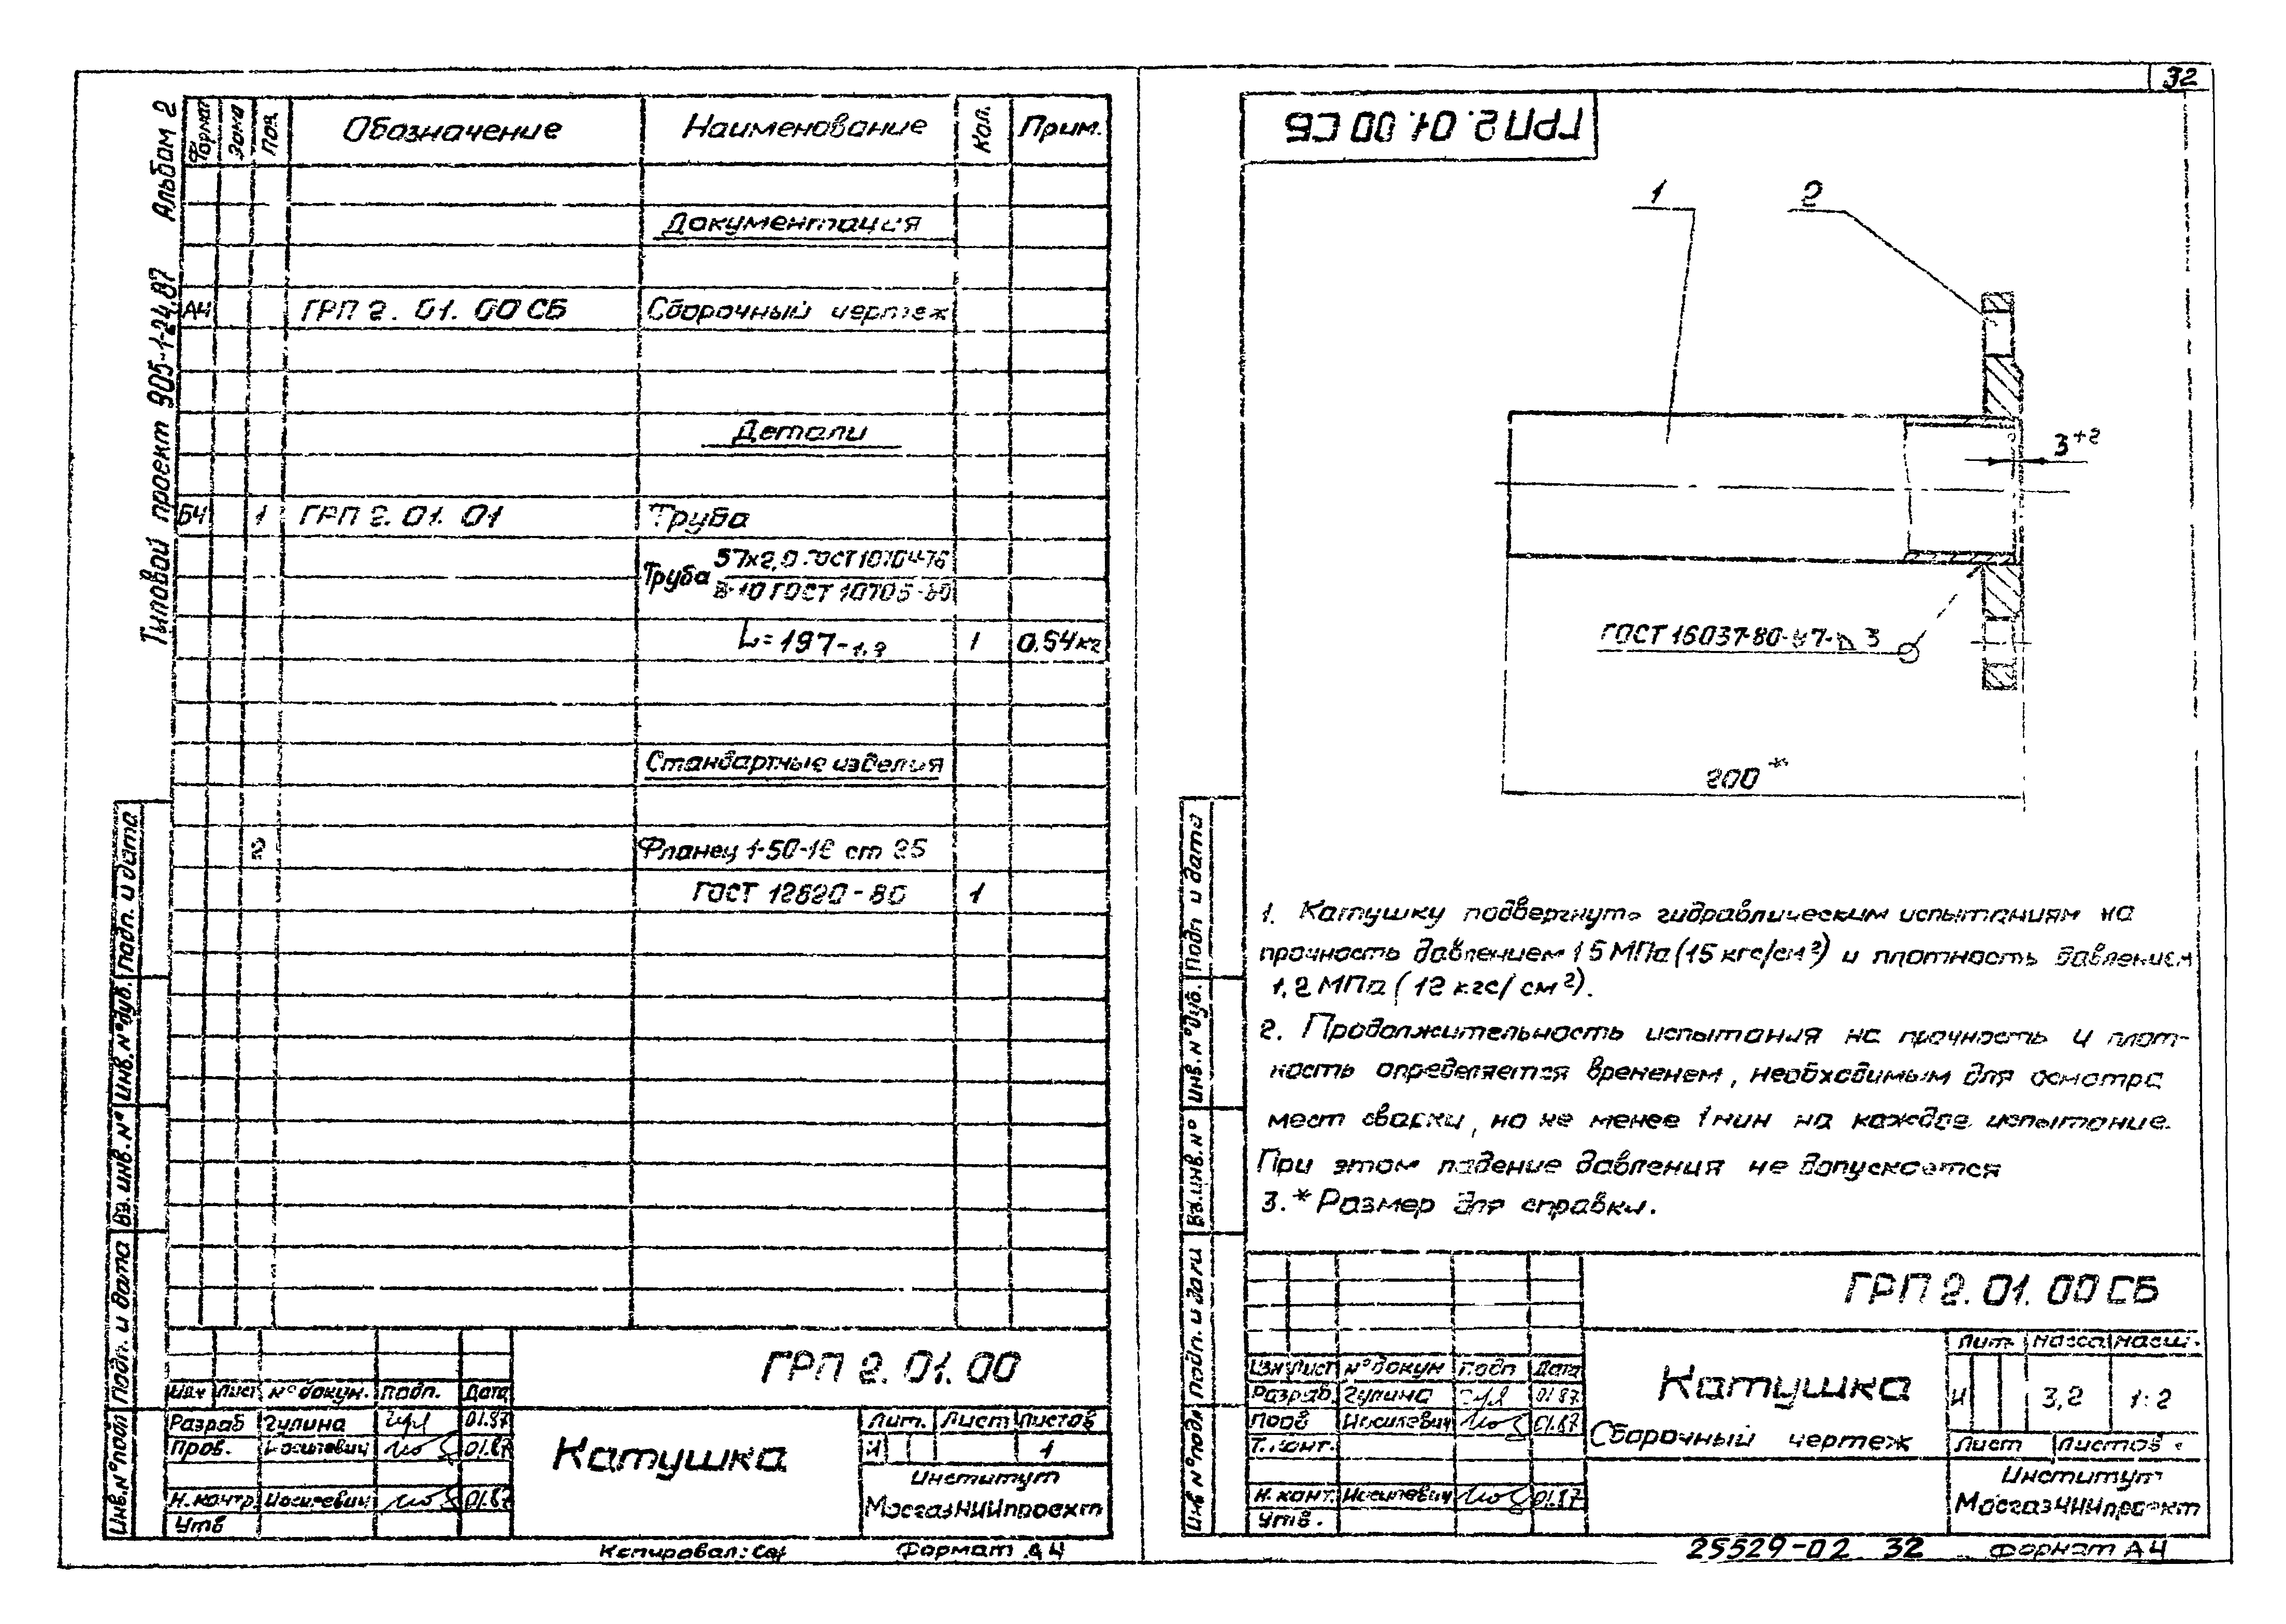 32
Типовой проект 905-1-24.87 Альбом 2
Формат Зона Поз. Обозначение Наименование Кол. Прим.
Документация
А4 ГРП 2. 01. 00 СБ Сборочный чертеж
Детали
БЧ 1 ГРП 2. 01. 01 Труба
Труба 57х2,0 ГОСТ 10704-76
В-10 ГОСТ 10705-80
L=197-1,3 1 0,54кг
Стандартные изделия
2 Фланец 1-50-12 ст 25
ГОСТ 12820-80 1
Инв.№подл Подп. и дата Вз.инв.№ Инв.№дуб. Подп. и дата
ГРП 2. 01. 00
Изм Лист №докум. Подп. Дата
Разраб Гулина 01.87
Пров. Иосилевич 01.87
Н.контр. Иосилевич 01.87
Утв
Катушка
Лит. Лист Листов
И 1
Институт
МосгазНИИпроект
Копировал: Формат А4
ГРП 2. 01. 00 СБ
1 2
3+2
ГОСТ 16037-80-У7-⊿3
200*
1. Катушку подвергнуть гидравлическим испытаниям на
прочность давлением 1 5 МПа (15 кгс/см²) и плотность давлением
1,2 МПа (12 кгс/см²).
2. Продолжительность испытания на прочность и плот-
ность определяется временем, необходимым для осмотра
мест сварки, но не менее 1 мин на каждое испытание.
При этом падение давления не допускается
3.* Размер для справки.
Инв №подл Подп. и дата Вз.инв.№ Инв.№дуб. Подп и дата
ГРП 2. 01. 00 СБ
Изм Лист №докум Подп Дата
Разраб. Гулина 01.87
Пров Иосилевич 01.87
Т.конт.
Н.конт. Иосилевич 01.87
Утв.
Катушка
Сборочный чертеж
Лит. Масса Масш.
И 3,2 1:2
Лист Листов
Институт
МосгазНИИпроект
25529-02 32 Формат А4